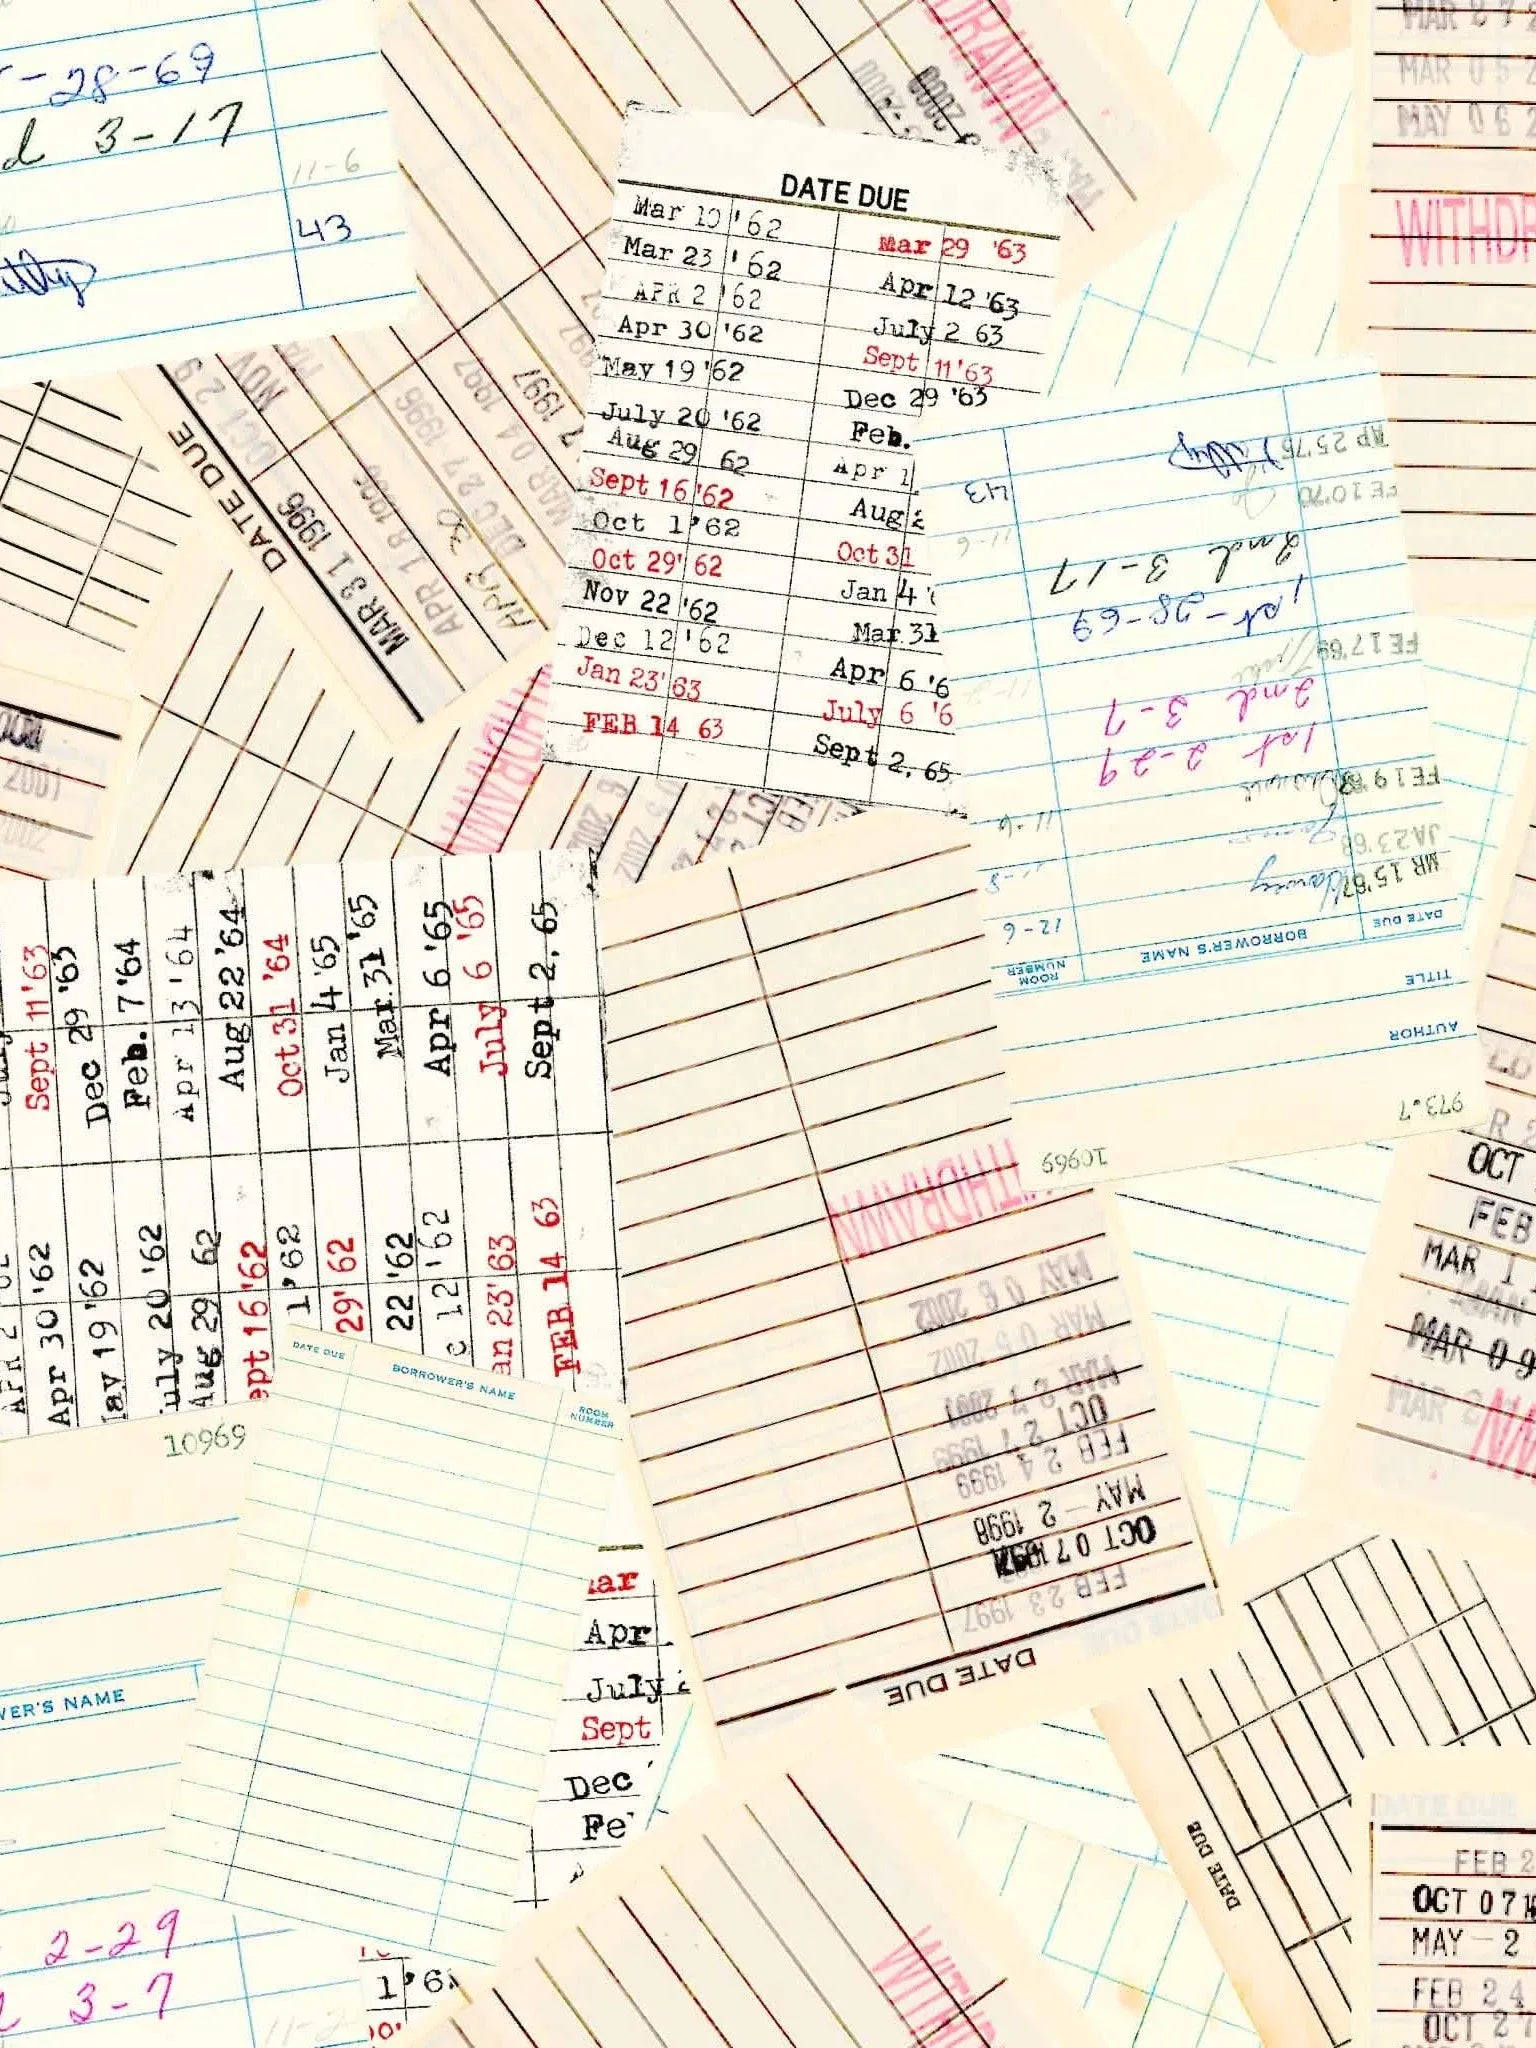 -28-69
3-17
11-6
43
DRAWN
2000
DATE DUE
Mar 10 '62
Mar 23 '62
APR 2 '62
Apr 30 '62
May 19 '62
July 20 '62
Aug 29 62
Sept 16 '62
Oct 1 '62
Oct 29' 62
Nov 22 '62
Dec 12 '62
Jan 23' 63
FEB 14 63
Mar 29 '63
Apr 12 '63
July 2 63
Sept 11 '63
Dec 29 '63
Feb.
Apr 1
Aug 2
Oct 31
Jan 4 '
Mar 31
Apr 6 '6
July 6 '6
Sept 2, 65
MAR 27 2
MAR 05 2
MAY 06 2
WITHDR
DATE DUE
MAR 31 1996
APR 18 1996
APR 30
DEC 27 1996
MAR 04 1997
7 1997
OCT 29
NOV
WITHDRAWN
2001
2002
10969
973.7
AUTHOR
TITLE
DATE DUE
BORROWER'S NAME
ROOM NUMBER
MR 15'67
Harvey
12-6
JA 23'68
11-8
FE 19'68
11-6
1st 2-29
2nd 3-7
FE 17'69
1st -28-69
2nd 3-17
FE 10'70
11-6
AP 25'75
43
Sept 11 '63
Dec 29 '63
Feb. 7 '64
Apr 13 '64
Aug 22 '64
Oct 31 '64
Jan 4 '65
Mar 31 '65
Apr 6 '65
July 6 '65
Sept 2, 65
APR 2
Apr 30 '62
May 19 '62
July 20 '62
Aug 29 62
ept 16 '62
1 '62
29' 62
22 '62
c 12 '62
an 23' 63
FEB 14 63
DATE DUE
FEB 23 1997
OCT 07 1997
MAY - 2 1998
FEB 24 1999
OCT 27 1999
MAR 27 2001
MAR 05 2002
MAY 06 2002
WITHDRAWN
OCT
FEB
MAR 1
MAR 09
MAR 2
10969
WER'S NAME
DATE DUE
BORROWER'S NAME
ROOM NUMBER
ar
Apr
July 2
Sept
Dec
Fe
2-29
3-7
11-2
1 '6
WITHD
DATE DUE
DATE DUE
FEB 2
OCT 07 1
MAY - 2
FEB 24
OCT 27